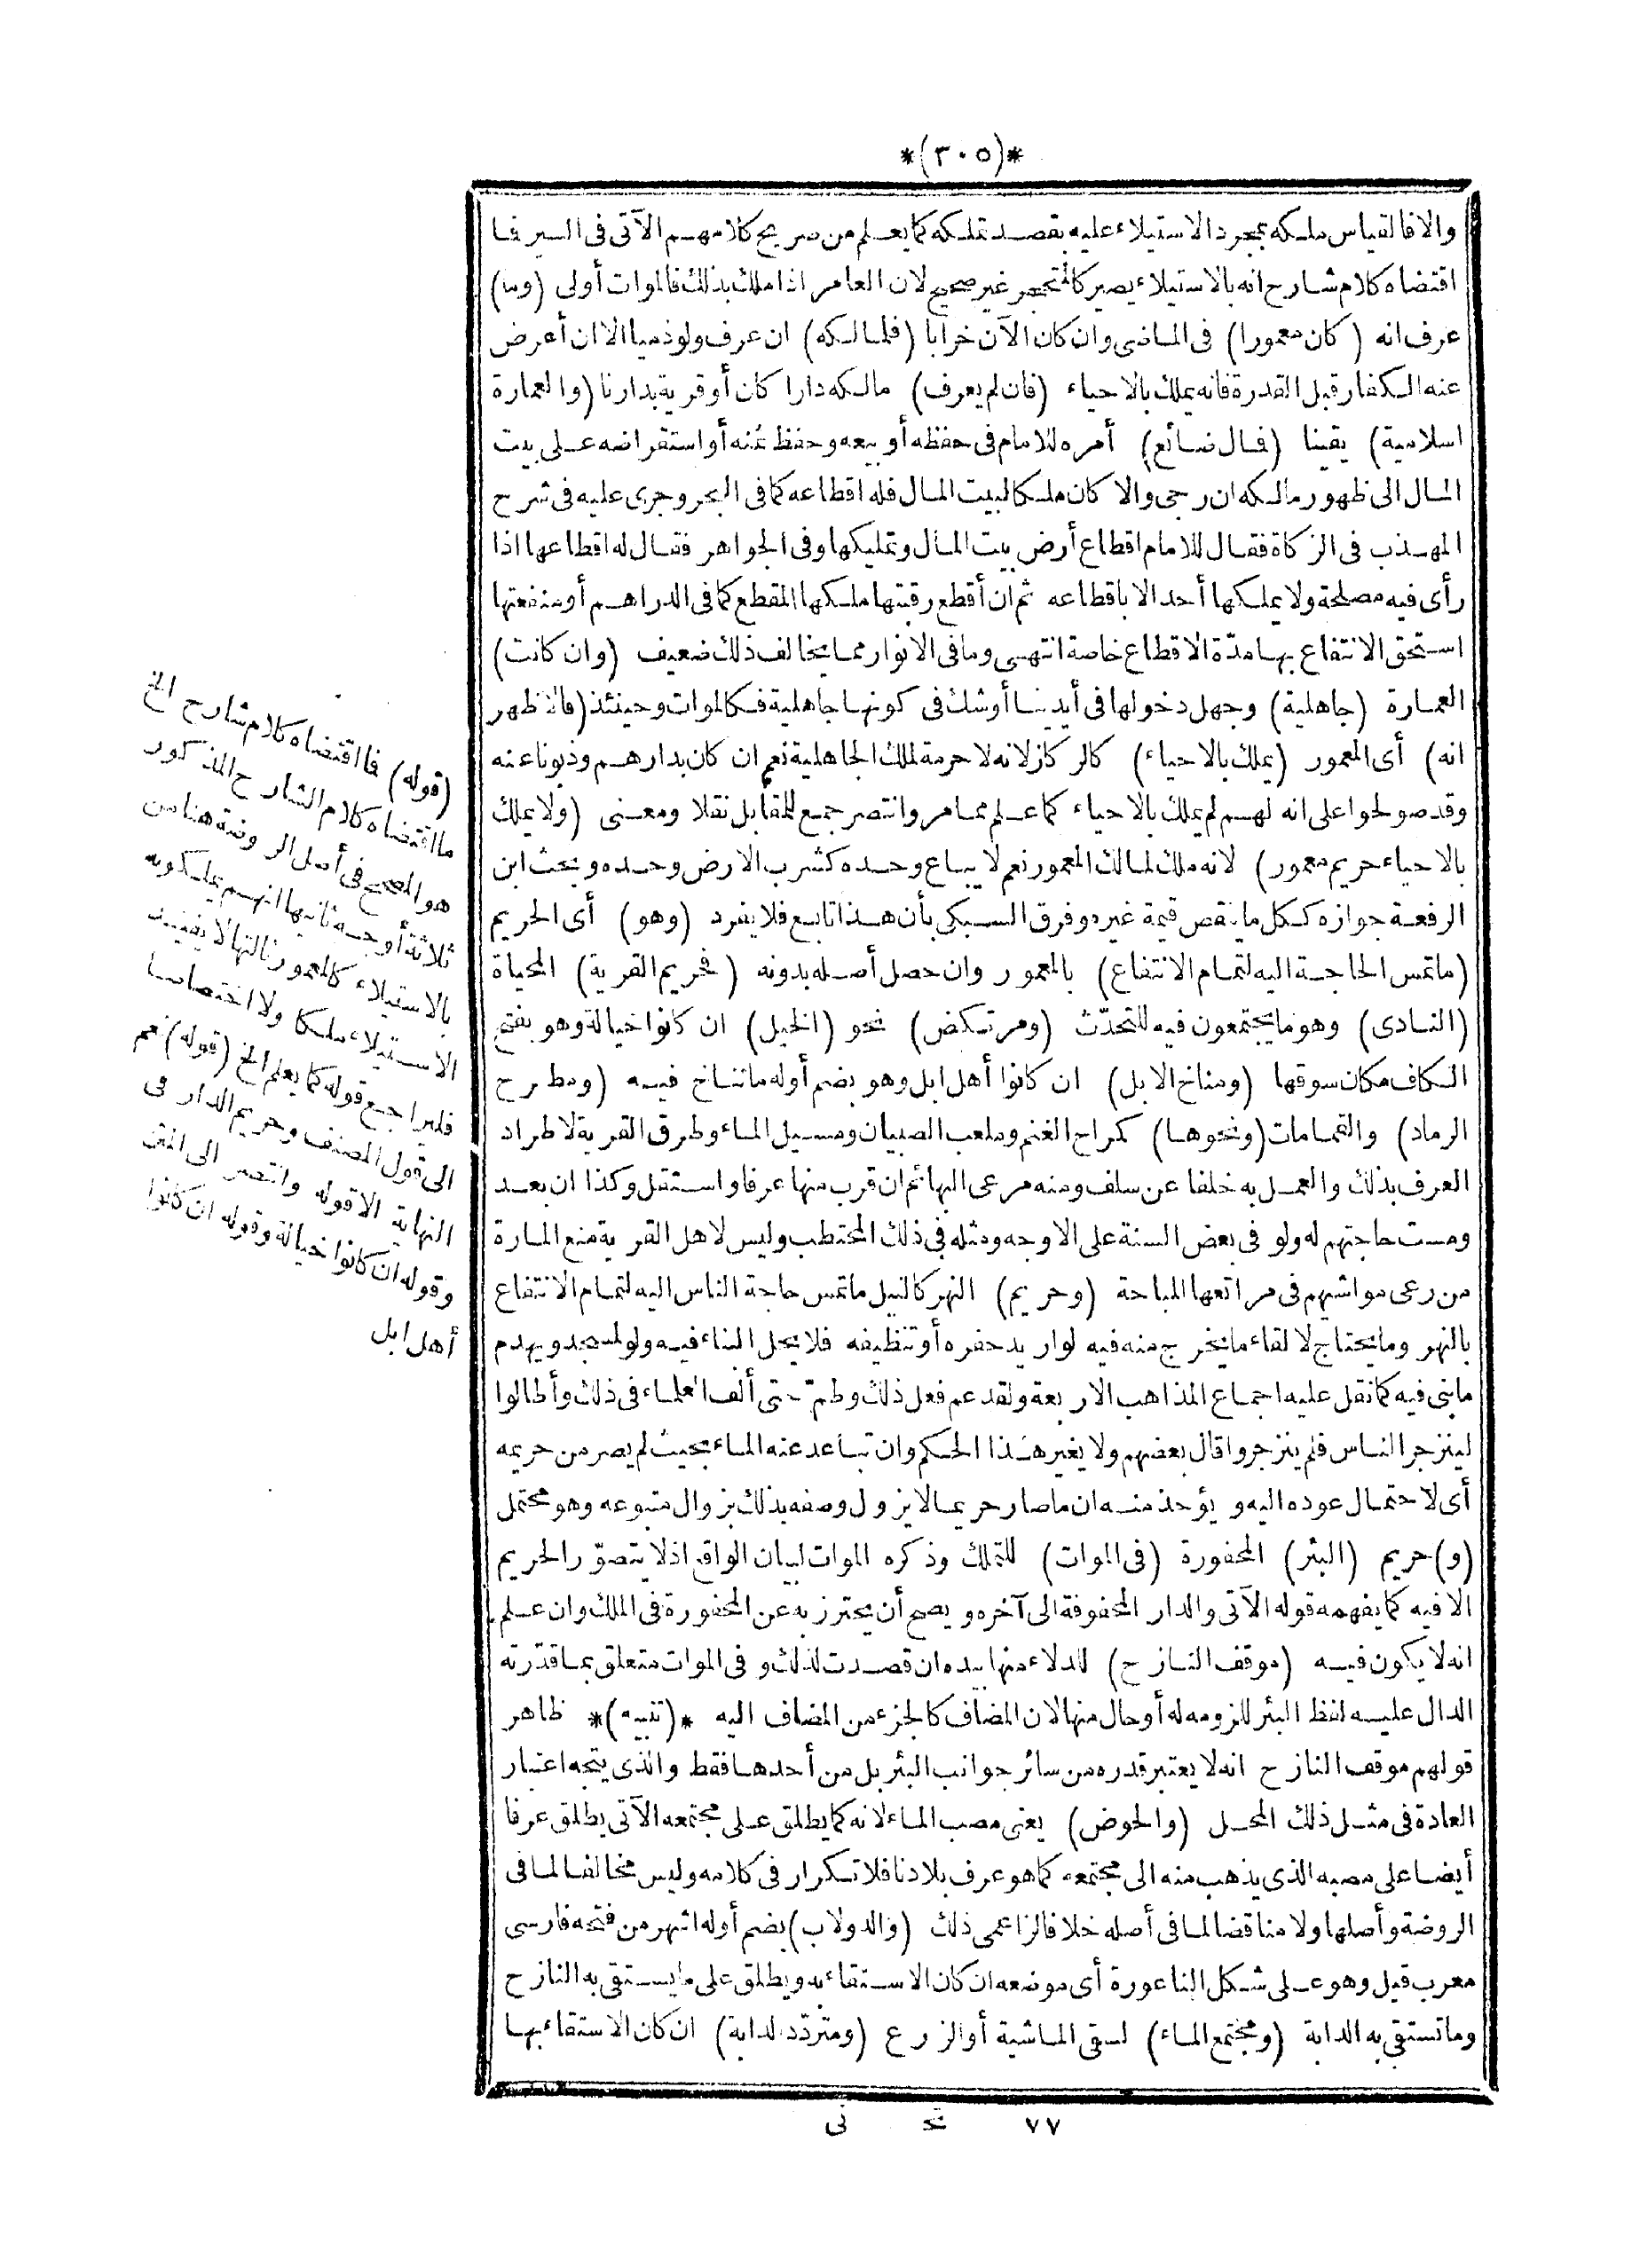 *(٣٠٥)*
والا فالقياس ملكه بمجرد الاستيلاء عليه بقصد تملكه كما يعلم من صريح كلامهم الآتى فى السير فما
اقتضاه كلام شارح انه بالاستيلاء يصير كالمتحجر غير صحيح لان العامر اذا ملك بذلك فالموات أولى (وما)
عرف انه (كان معمورا) فى الماضى وان كان الآن خرابا (فلمالكه) ان عرف ولو ذميا الا ان أعرض
عنه الكفار قبل القدرة فانه يملك بالاحياء (فان لم يعرف) مالكه دارا كان أو قرية بدارنا (والعمارة
اسلامية) يقينا (فمال ضائع) أمره للامام فى حفظه أو بيعه وحفظ ثمنه أو استقراضه على بيت
المال الى ظهور مالكه ان رجى والا كان ملكا لبيت المال فله اقطاعه كما فى البحر وجرى عليه فى شرح
المهذب فى الزكاة فقال للامام اقطاع أرض بيت المال وتمليكها وفى الجواهر فقال له اقطاعها اذا
رأى فيه مصلحة ولا يملكها أحد الا باقطاعه ثم ان أقطع رقبتها ملكها المقطع كما فى الدراهم أو منفعتها
استحق الانتفاع بها مدّة الاقطاع خاصة انتهى وما فى الانوار مما يخالف ذلك ضعيف (وان كانت)
العمارة (جاهلية) وجهل دخولها فى أيدينا أو شك فى كونها جاهلية فكالموات وحينئذ (فالاظهر
انه) أى المعمور (يملك بالاحياء) كالركاز لانه لا حرمة لملك الجاهلية نعم ان كان بدارهم وذبونا عنه
وقد صولحوا على انه لهم لم يملك بالاحياء كما علم مما مر وانتصر جمع للمقابل نقلا ومعنى (ولا يملك
بالاحياء حريم معمور) لانه ملك لمالك المعمور نعم لا يباع وحده كشرب الارض وحده وبحث ابن
الرفعة جوازه ككل ما ينقص قيمة غيره وفرق السبكى بأن هذا تابع فلا يفرد (وهو) أى الحريم
(ما تمس الحاجة اليه لتمام الانتفاع) بالمعمور وان حصل أصله بدونه (فحريم القرية) المحياة
(النادى) وهو ما يجتمعون فيه للتحدّث (ومرتكض) نحو (الخيل) ان كانوا خيالة وهو بفتح
الكاف مكان سوقها (ومناخ الابل) ان كانوا أهل ابل وهو بضم أوله ما تناخ فيه (ومطرح
الرماد) والقمامات (ونحوها) كمراح الغنم وملعب الصبيان ومسيل الماء وطرق القرية لاطراد
العرف بذلك والعمل به خلفا عن سلف ومنه مرعى البهائم ان قرب منها عرفا واستقل وكذا ان بعد
ومست حاجتهم له ولو فى بعض السنة على الاوجه ومثله فى ذلك المحتطب وليس لاهل القرية منع المارة
من رعى مواشيهم فى مراتعها المباحة (وحريم) النهر كالنيل ما تمس حاجة الناس اليه لتمام الانتفاع
بالنهر وما يحتاج لالقاء ما يخرج منه فيه لو اريد حفره أو تنظيفه فلا يحل البناء فيه ولو لمسجد ويهدم
ما بنى فيه كما نقل عليه اجماع المذاهب الاربعة ولقد عم فعل ذلك وطمّ حتى ألف العلماء فى ذلك وأطالوا
لينزجر الناس فلم ينزجروا قال بعضهم ولا يغير هذا الحكم وان تباعد عنه الماء بحيث لم يصر من حريمه
أى لاحتمال عوده اليه ويؤخذ منه ان ما صار حريما لا يزول وصفه بذلك بزوال متبوعه وهو محتمل
(و) حريم (البئر) المحفورة (فى الموات) للتملك وذكره الموات لبيان الواقع اذ لا يتصوّر الحريم
الا فيه كما يفهمه قوله الآتى والدار المحفوفة الى آخره ويصح أن يحترز به عن المحفورة فى الملك وان علم
انه لا يكون فيه (موقف النازح) للدلاء منها بيده ان قصدت لذلك وفى الموات متعلق بما قدّرته
الدال عليه لفظ البئر للزومه له أو حال منها لان المضاف كالجزء من المضاف اليه *(تنبيه)* ظاهر
قولهم موقف النازح انه لا يعتبر قدره من سائر جوانب البئر بل من أحدها فقط والذى يتجه اعتبار
العادة فى مثل ذلك المحل (والحوض) يعنى مصب الماء لانه كما يطلق على مجتمعه الآتى يطلق عرفا
أيضا على مصبه الذى يذهب منه الى مجتمعه كما هو عرف بلادنا فلا تكرار فى كلامه وليس مخالفا لما فى
الروضة وأصلها ولا مناقضا لما فى أصله خلافا لزاعمى ذلك (والدولاب) بضم أوله اشهر من فتحه فارسى
معرب قيل وهو على شكل الناعورة أى موضعه ان كان الاستقاء به ويطلق على ما يستقى به النازح
وما تستقى به الدابة (ومجتمع الماء) لسقى الماشية أو الزرع (ومتردّد الدابة) ان كان الاستقاء بها
(قوله) فما اقتضاه كلام شارح الخ
ما اقتضاه كلام الشارح المذكور
هو المصحح فى أصل الروضة هنا من
ثلاثة أوجه ثانيها انهم يملكونه
بالاستيلاء كالمعمور ثالثها لا يفيد
الاستيلاء ملكا ولا اختصاصا
فليراجع قوله كما يعلم الخ (قوله) نعم
الى قول المصنف وحريم الدار فى
النهاية الا قوله وانتصر الى المتن
وقوله ان كانوا خيالة وقوله ان كانوا
أهل ابل
٧٧ تحـ نى